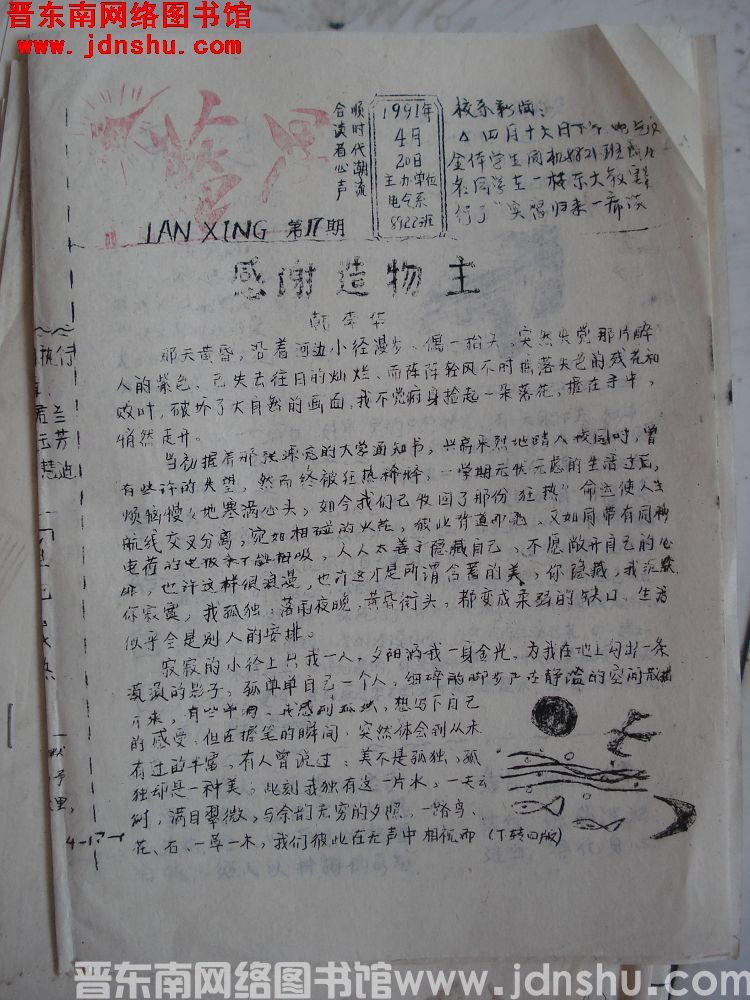 晋东南网络图书馆
www.jdnshu.com
顺时代潮流
合读者心声
1991年
4月
20日
主办单位
电气系
8922班
校系新闻:
△四月十六日下午,电气系
全体学生同机
条同学在一楼东大教室举
行了"实习归来一席谈
LAN XING 第17期
感谢造物主
韩李华
那天黄昏,沿着河边小径漫步,偶一抬头,突然失觉那片醉
人的紫色,已失去往日的灿烂,而阵阵轻风不时摇落失色的残花和
败叶,破坏了大自然的画面,我不觉俯身捡起一朵落花,握在手中,
悄然走开。
当初握着那张漂亮的大学通知书,兴高采烈地踏入校园时,曾
有些许的失望,然而终被狂热稀释,一学期无忧无虑的生活过后,
烦恼慢慢地塞满心头,如今我们已收回了那份"狂热"命运使人生
航线交叉分离,宛如相碰的火花,彼此背道而驰,又如同带有同种
电荷的电极永不能相吸,人人太善于隐藏自己,不愿敞开自己的心
扉,也许这样很浪漫,也许这才是所谓含蓄的美,你隐藏,我沉默
你寂寞,我孤独,落雨夜晚,黄昏街头,都变成柔弱的缺口,生活
似乎全是别人的安排。
寂寂的小径上只我一人,夕阳洒我一身金光,为我在地上勾出一条
滚滚的影子,孤单单自己一个人,细碎的脚步声在静谧的空间散播
开来,有些单调,我感到孤寂,想写下自己
的感受,但在握笔的瞬间,突然体会到从未
有过的丰富,有人曾说过:美不是孤独,孤
独却是一种美。此刻我独有这一片水,一天云
树,满目翠微,与余韵无穷的夕照,一路鸟、
花、石、一草一木,我们彼此在无声中相视而(下转四版)
执行
君兰
玉芳
慧迪
里,
4-17-1
晋东南网络图书馆www.jdnshu.com